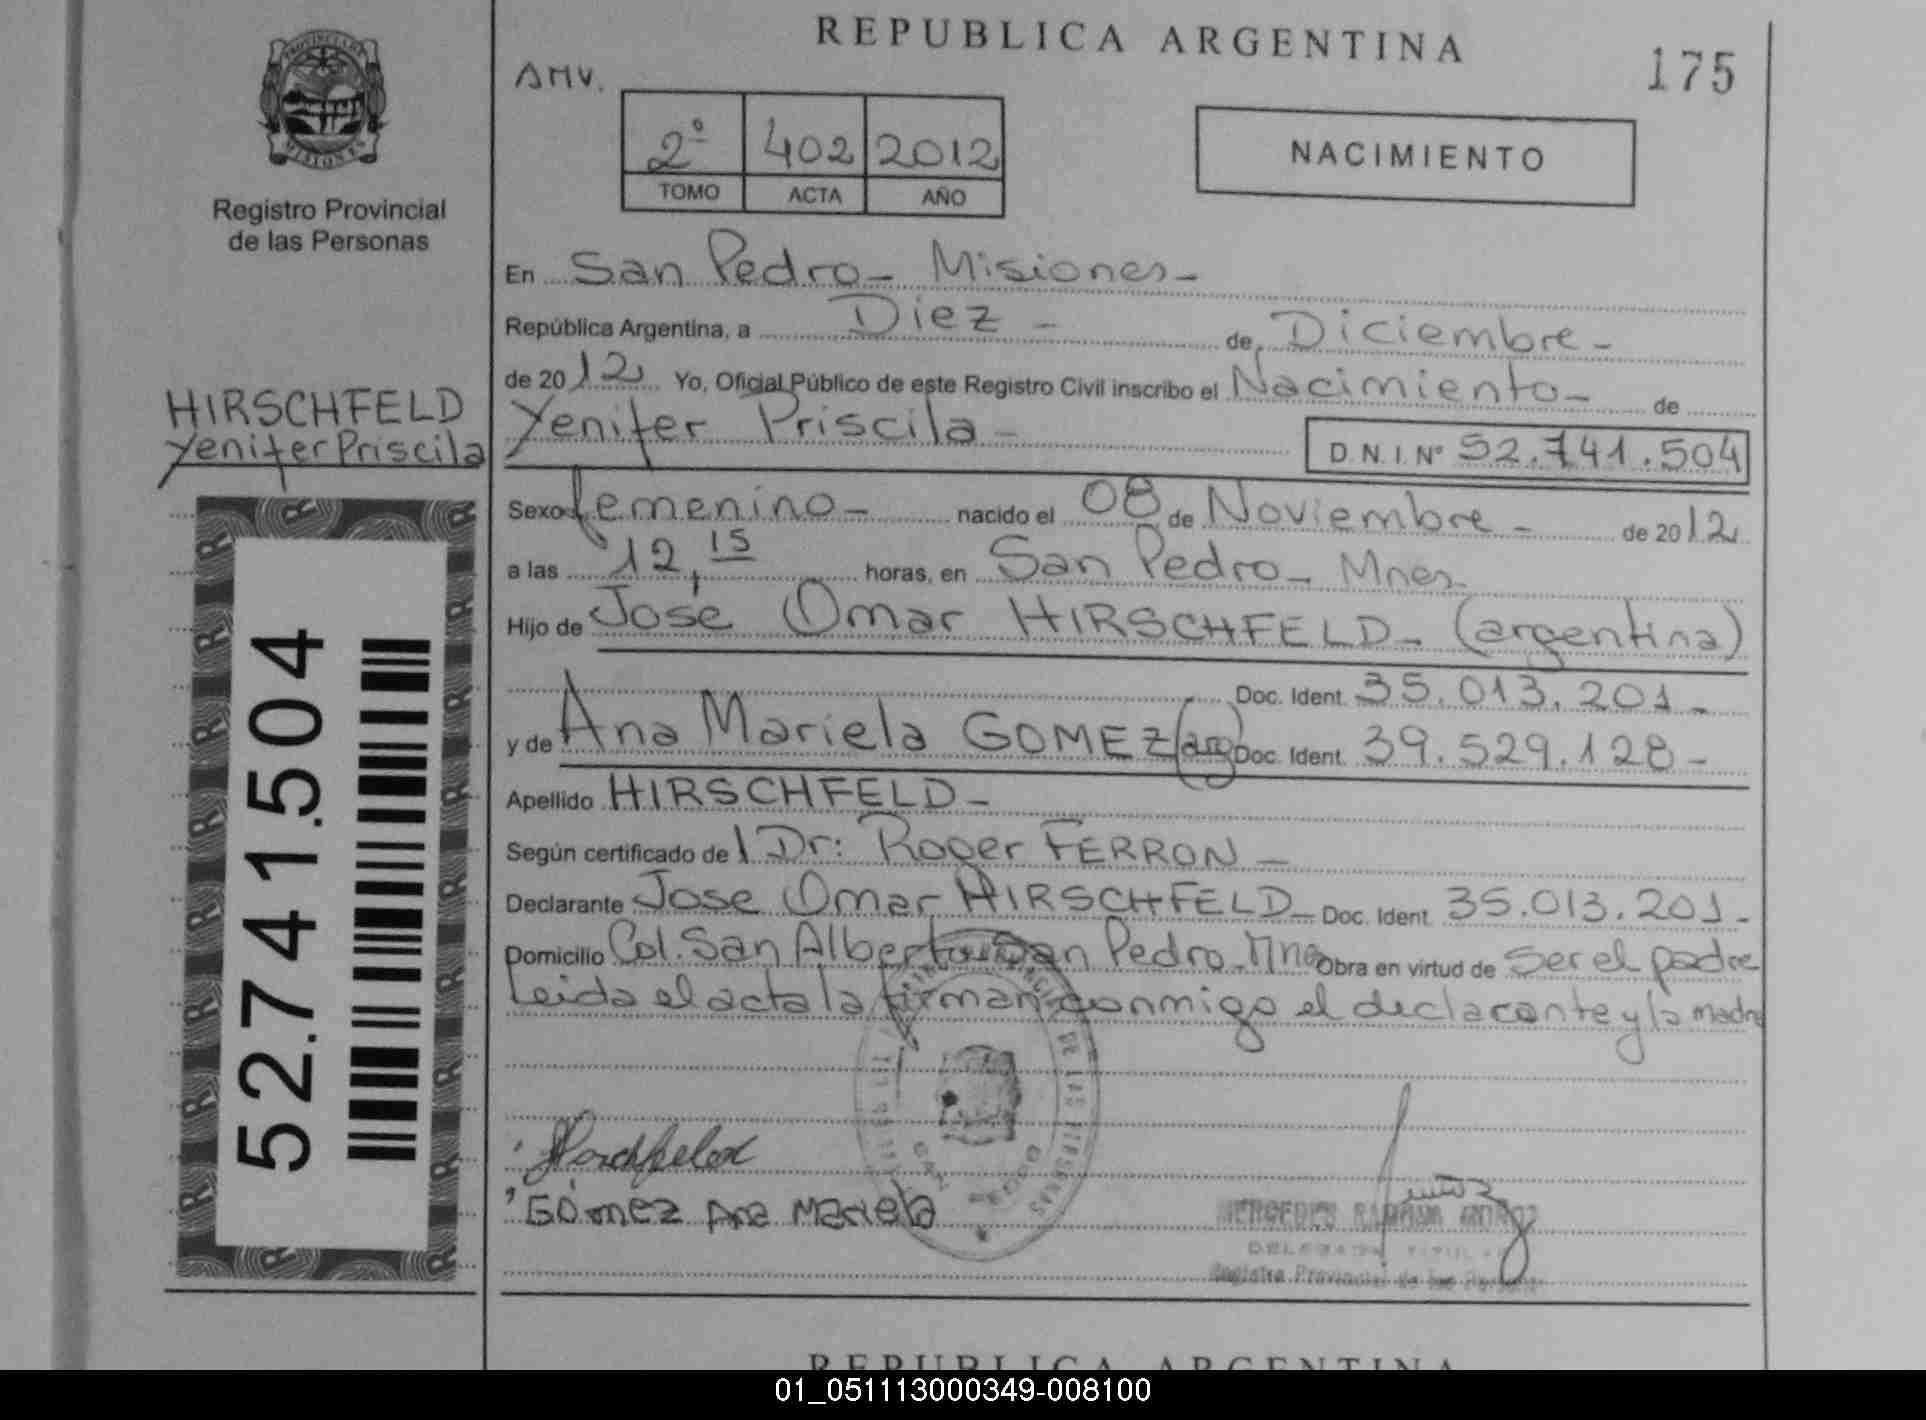 REPUBLICA ARGENTINA
175
AMV.
PROVINCIA DE MISIONES
Registro Provincial
de las Personas
2º 402 2012
TOMO ACTA AÑO
NACIMIENTO
En San Pedro - Misiones -
República Argentina, a Diez - de Diciembre -
de 2012 Yo, Oficial Público de este Registro Civil inscribo el Nacimiento - de
HIRSCHFELD
Yenifer Priscila
Yenifer Priscila -
D.N.I.Nº 52.741.504
Sexo femenino - nacido el 08 de Noviembre - de 2012
a las 12,15 horas, en San Pedro - Mnes.
Hijo de José Omar HIRSCHFELD - (argentina)
Doc. Ident. 35.013.201 -
y de Ana Mariela GOMEZ (arg) Doc. Ident. 39.529.128 -
Apellido HIRSCHFELD -
Según certificado de l Dr: Roger FERRON -
Declarante Jose Omar HIRSCHFELD - Doc. Ident. 35.013.201 -
Domicilio Col. San Alberto San Pedro - Mnes Obra en virtud de Ser el padre
Leida el acta la firman conmigo el declarante y la madre
52.741.504
Gómez Ana Mariela
Muñoz
MERCEDES RAMONA MUÑOZ
DELEGADA TITULAR
Registro Provincial de las Personas
REPUBLICA ARGENTINA
01_051113000349-008100